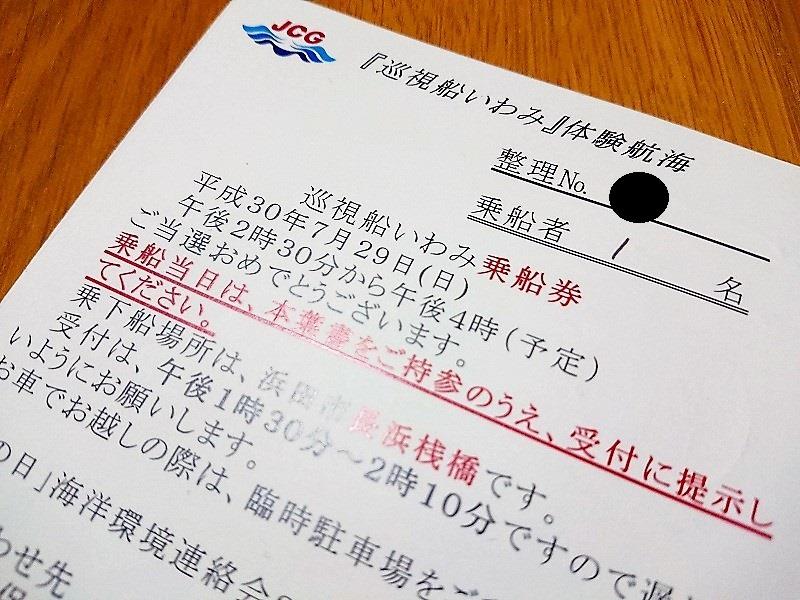 JCG
『巡視船いわみ』体験航海
整理No.
乗船者 1 名
巡視船いわみ乗船券
平成30年7月29日(日)
午後2時30分から午後4時(予定)
ご当選おめでとうございます。
乗船当日は、本葉書をご持参のうえ、受付に提示し
てください。
乗下船場所は、浜田市長浜桟橋です。
受付は、午後1時30分～2時10分ですので遅
いようにお願いします。
お車でお越しの際は、臨時駐車場をご
の日」海洋環境連絡会
わせ先